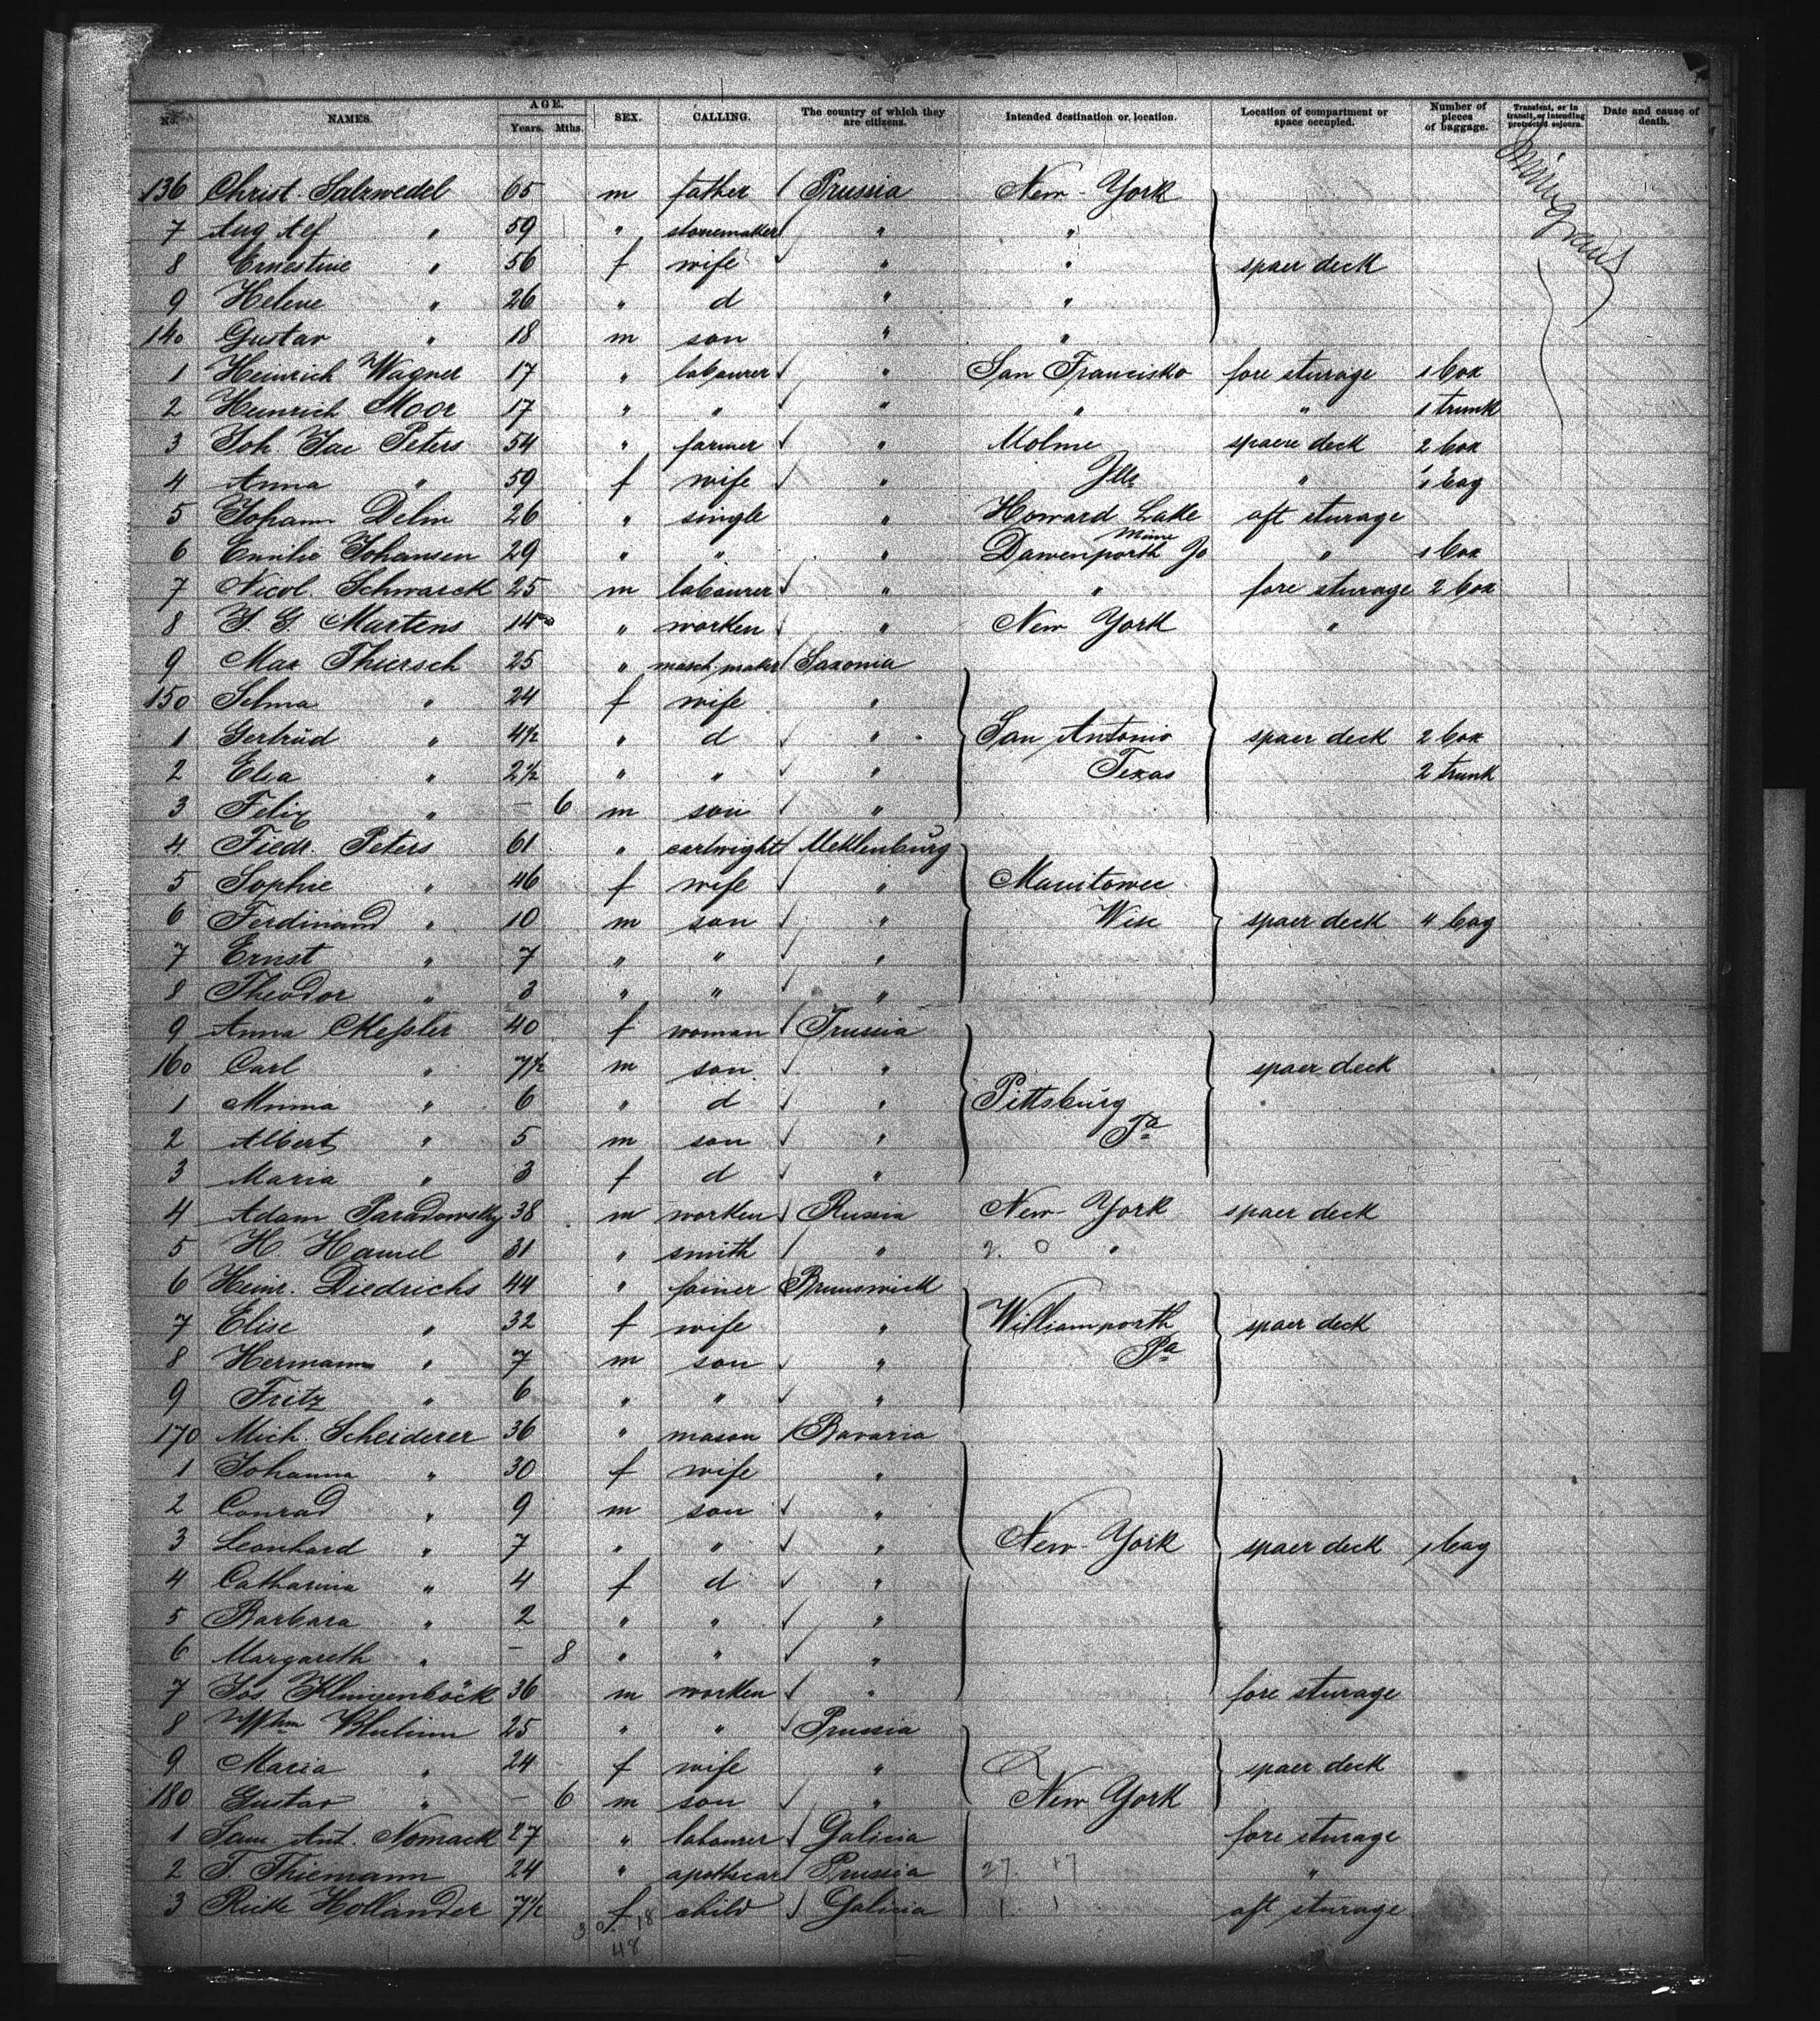 No. NAMES. AGE. Years. Mths. SEX. CALLING. The country of which they are citizens. Intended destination or location. Location of compartment or space occupied. Number of pieces of baggage. Transient, or in transit, or intending protracted sojourn. Date and cause of death.
136 Christ. Salzwedel 65 m father Prussia New-York
7 Aug 59 " stonemaker " "
8 Ernestine " 56 f wife " " spaer deck
9 Helene " 26 " d " "
140 Gustav " 18 m son " "
1 Heinrich Wagner 17 " labourer " San Francisko fore sturage 1 box
2 Heinrich Moor 17 " " " " " 1 trunk
3 Joh Jac Peters 54 " farmer " Moline spaere deck 2 box
4 Anna " 59 f wife " Ills " 1 bag
5 Johann Delin 26 " single " Howard Lake aft sturage
Minne
6 Emilie Johansen 29 " " " Dawenporth Jo " 1 box
7 Nicol. Schwarck 25 m labourer " " fore sturage 2 box
8 J. G. Martens 14 " worken " New York "
9 Max Thiersch 25 " masch. maker Saxonia
150 Selma " 24 f wife "
1 Gertrud " 4½ " d " San Antonio spaer deck 2 box
2 Elsa " 2½ " " " Texas 2 trunk
3 Felix " – 6 m son "
4 Fiedr. Peters 61 " cartwight Meklenburg
5 Sophie " 46 f wife " Manitowec
6 Ferdinand " 10 m son " Wisc spaer deck 4 bag
7 Ernst " 7 " " "
8 Theodor " 3 " " "
9 Anna Meßler 40 f woman Prussia
160 Carl " 7½ m son " spaer deck
1 Minna " 6 " d " Pittsburg
2 Albert " 5 m son " Pa
3 Maria " 3 f d "
4 Adam Paradowsky 38 m worken Russia New-York spaer deck
5 H Hamel 31 " smith " "
6 Heinr. Diedrichs 44 " joiner Brunswick
7 Elise " 32 f wife " Williamporth spaer deck
8 Hermann " 7 m son " Pa
9 Fritz " 6 " " "
170 Mich. Scheiderer 36 " mason Bavaria
1 Johanna " 30 f wife "
2 Conrad " 9 m son "
3 Leonhard " 7 " " " New-York spaer deck 1 bag
4 Catharina " 4 f d "
5 Barbara " 2 " " "
6 Margareth " – 8 " " "
7 Jos. Klingenböck 36 m worken " fore sturage
8 Wilhm 25 " " Prussia
9 Maria " 24 f wife " spaer deck
180 Gustav " – 6 m son " New York
1 Sam Ant. Nomack 27 " labourer Galicia fore sturage
2 T. Thiemann 24 " apothecar Prussia "
3 Ricke Hollander 7½ f child Galicia aft sturage
30 18
48